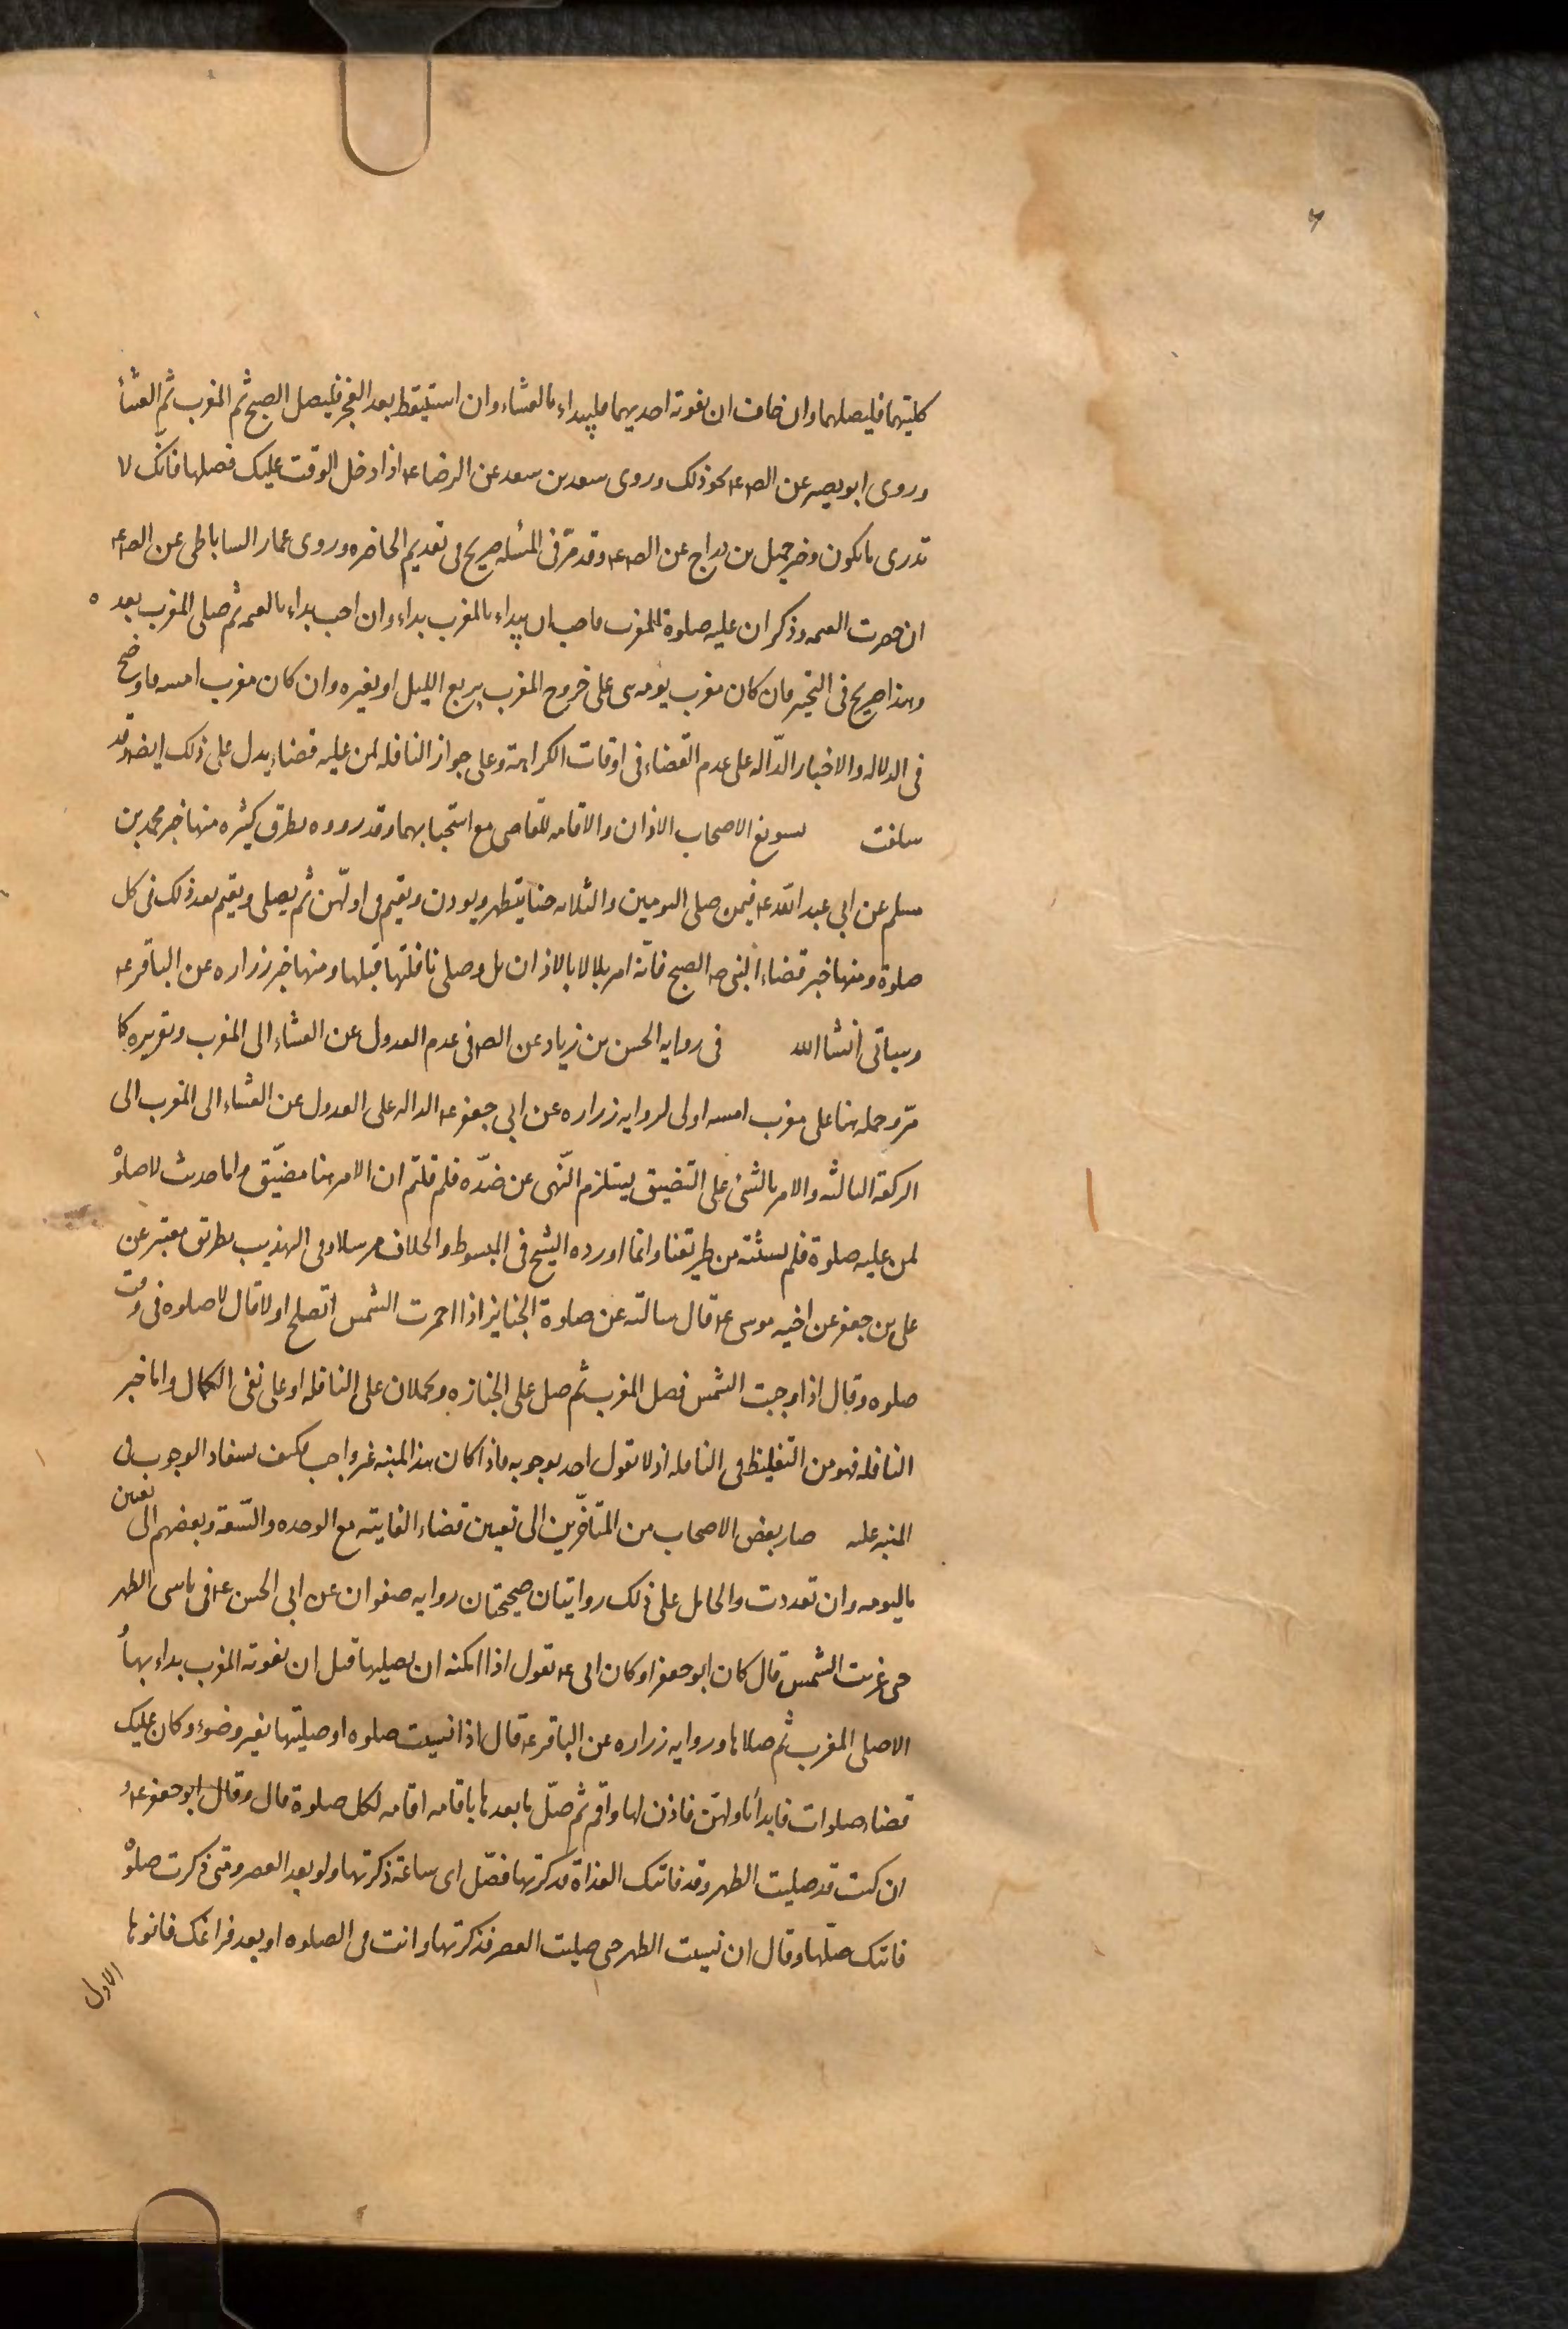 كليتهما فليصلهما وان خاف ان تفوته احديهما فليبداء بالعشاء وان استيقظ بعد الفجر فليصل الصبح ثم المغرب ثم العشأ
وروى ابو بصير عن الص ع نحو ذلك وروى سعد بن سعد عن الرضا ع اذا دخل الوقت عليك فصلها فانك لا
تدرى ما يكون وخبر جميل بن دراج عن الص ع وقد مرّ فى المسئله صريح فى تقديم الحاضره وروى عمار الساباطى عن الص ع
ان حضرت العتمه وذكر ان عليه صلوة المغرب فاحب ان يبداء بالمغرب بداء وان احب بداء بالعتمه ثم صلى المغرب بعد ه
وهذا صريح فى التخير فان كان مغرب يومه بنى على خروج المغرب بربع الليل او بغيره وان كان مغرب امسه فاوضح
فى الدلاله والاخبار الدّاله على عدم القضاء فى اوقات الكراهة وعلى جواز النافله لمن عليه قضاء يدل على ذلك ايضا وقد
سلفت      تسويغ الاصحاب الاذان والاقامه للقاضى مع استحبابهما وقد رووه بطرق كثيره منها خبر محمد بن
مسلم عن ابى عبد الله ع فيمن صلى اليومين والثلاثه جنبا يتطهر ويوذن ويقيم فى اولهن ثم يصلى ويقيم بعد ذلك فى كل
صلوة ومنها خبر قضاء النبى ص الصبح فانه امر بلالا بالاذان بل وصلى نافلتها قبلها ومنها خبر زراره عن الباقر ع
وسياتى انشاالله      فى روايه الحسن بن زياد عن الص فى عدم العدول عن العشاء الى المغرب وتقريره كما
مرّ وحمله هنا على مغرب امسه اولى لروايه زراره عن ابى جعفر ع الداله على العدول عن العشاء الى المغرب الى
الركعة الثالثه والامر بالشئ على التضييق يستلزم النّهى عن ضدّه فلم قلتم ان الامر هنا مضيّق واما حديث لا صلوة
لمن عليه صلوة فلم نثبته من طريقنا وانما اورده الشيخ فى المبسوط والخلاف مرسلا وفى التهذيب بطريق معتبر عن
على بن جعفر عن اخيه موسى ع قال سالته عن صلوة الجنايز اذا احمرت الشمس اتصلح او لا قال لا صلوه فى وقت
صلوه وقال اذا وجبت الشمس فصل المغرب ثم صل على الجنازه ويحملان على النافله او على نفى الكمال واما خبر
النافله فهو من التغليظ فى النافله اذ لا يقول احد بوجوبه فاذا كان هذا المنبه غير واجب فكيف يستفاد الوجوب فى
المنبه عليه      صار بعض الاصحاب من المتاخّرين الى تعيين قضاء الفايته مع الوحده والسّعة وبعضهم الى تعيين
فاليومه وان تعددت والحامل على ذلك روايتان صحيحتان روايه صفوان عن ابى الحسن ع فى ناسى الظهر
حتى غربت الشمس قال كان ابو جعفر او كان ابى ع يقول اذا امكنه ان يصليها قبل ان تفوته المغرب بداء بها
الا صلى المغرب ثم صلاها وروايه زراره عن الباقر ع قال اذا نسيت صلوه او صليتها بغير وضوء وكان عليك
قضاء صلوات فابدأ باولهن فاذن لها واقم ثم صلّ ما بعدها باقامه اقامه لكل صلوة قال وقال ابو جعفر ع و
ان كنت قد صليت الظهر وقد فاتتك الغداة فذكرتها فصّل اى ساعة ذكرتها ولو بعد العصر ومتى ذكرت صلوة
فاتتك صلّها وقال ان نسيت الظهر حى صليت العصر فذكرتها وانت فى الصلوه او بعد فراغك فانوها
الاولى